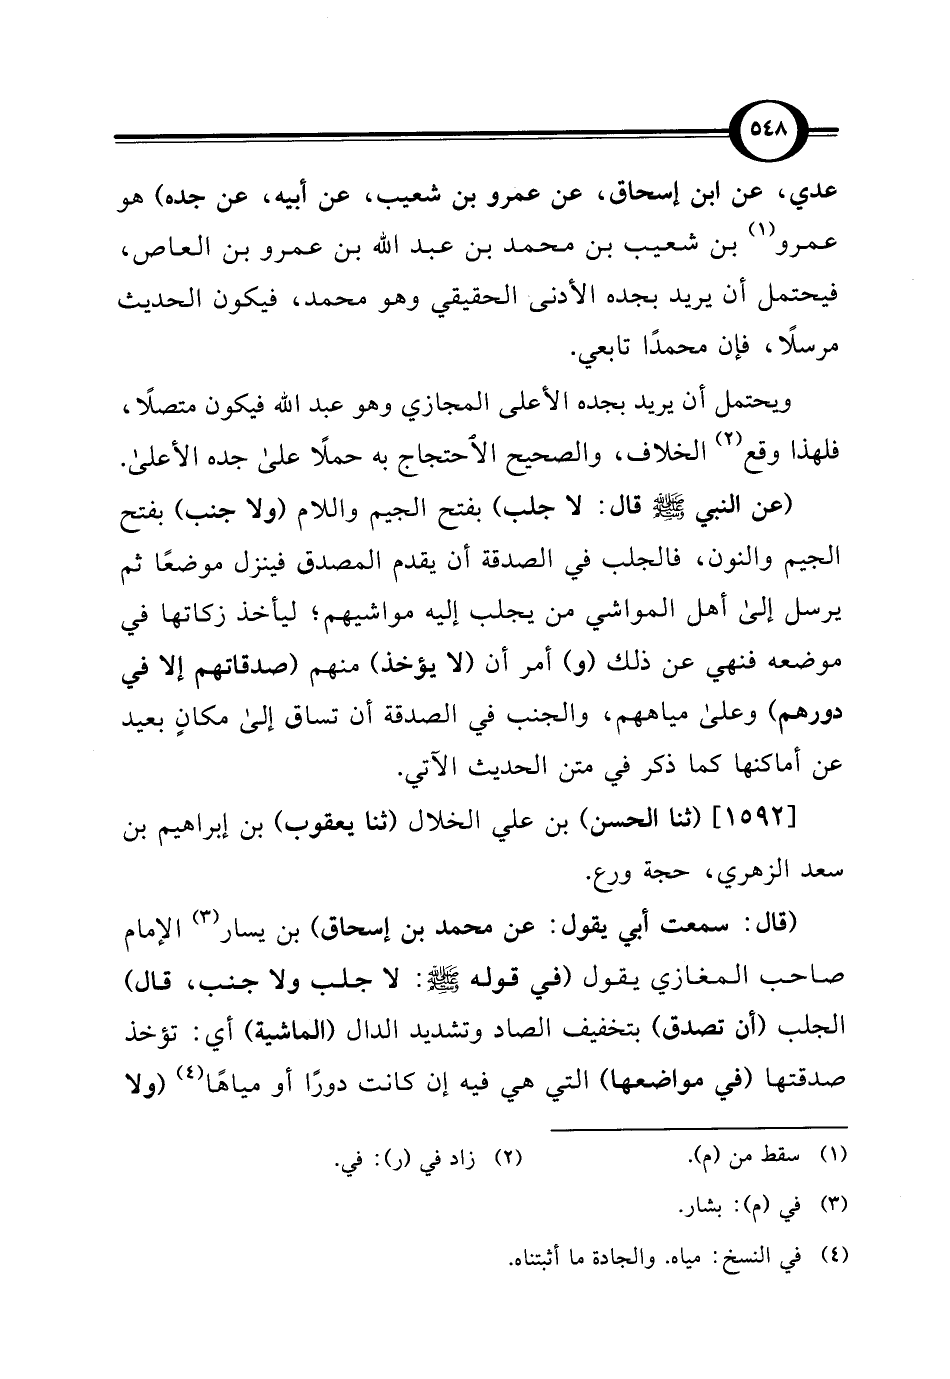 ٥٤٨
عدي، عن ابن إسحاق، عن عمرو بن شعيب، عن أبيه، عن جده) هو
عمرو(١) بن شعيب بن محمد بن عبد الله بن عمرو بن العاص،
فيحتمل أن يريد بجده الأدنى الحقيقي وهو محمد، فيكون الحديث
مرسلًا، فإن محمدًا تابعي.
ويحتمل أن يريد بجده الأعلى المجازي وهو عبد الله فيكون متصلًا،
فلهذا وقع(٢) الخلاف، والصحيح الاحتجاج به حملًا علىٰ جده الأعلىٰ.
(عن النبي ﷺ قال: لا جلب) بفتح الجيم واللام (ولا جنب) بفتح
الجيم والنون، فالجلب في الصدقة أن يقدم المصدق فينزل موضعًا ثم
يرسل إلىٰ أهل المواشي من يجلب إليه مواشيهم؛ ليأخذ زكاتها في
موضعه فنهي عن ذلك (و) أمر أن (لا يؤخذ) منهم (صدقاتهم إلا في
دورهم) وعلىٰ مياههم، والجنب في الصدقة أن تساق إلىٰ مكانٍ بعيد
عن أماكنها كما ذكر في متن الحديث الآتي.
[١٥٩٢] (ثنا الحسن) بن علي الخلال (ثنا يعقوب) بن إبراهيم بن
سعد الزهري، حجة ورع.
(قال: سمعت أبي يقول: عن محمد بن إسحاق) بن يسار(٣) الإمام
صاحب المغازي يقول (في قوله ﷺ: لا جلب ولا جنب، قال)
الجلب (أن تصدق) بتخفيف الصاد وتشديد الدال (الماشية) أي: تؤخذ
صدقتها (في مواضعها) التي هي فيه إن كانت دورًا أو مياهًا(٤) (ولا
(١) سقط من (م). (٢) زاد في (ر): في.
(٣) في (م): بشار.
(٤) في النسخ: مياه. والجادة ما أثبتناه.